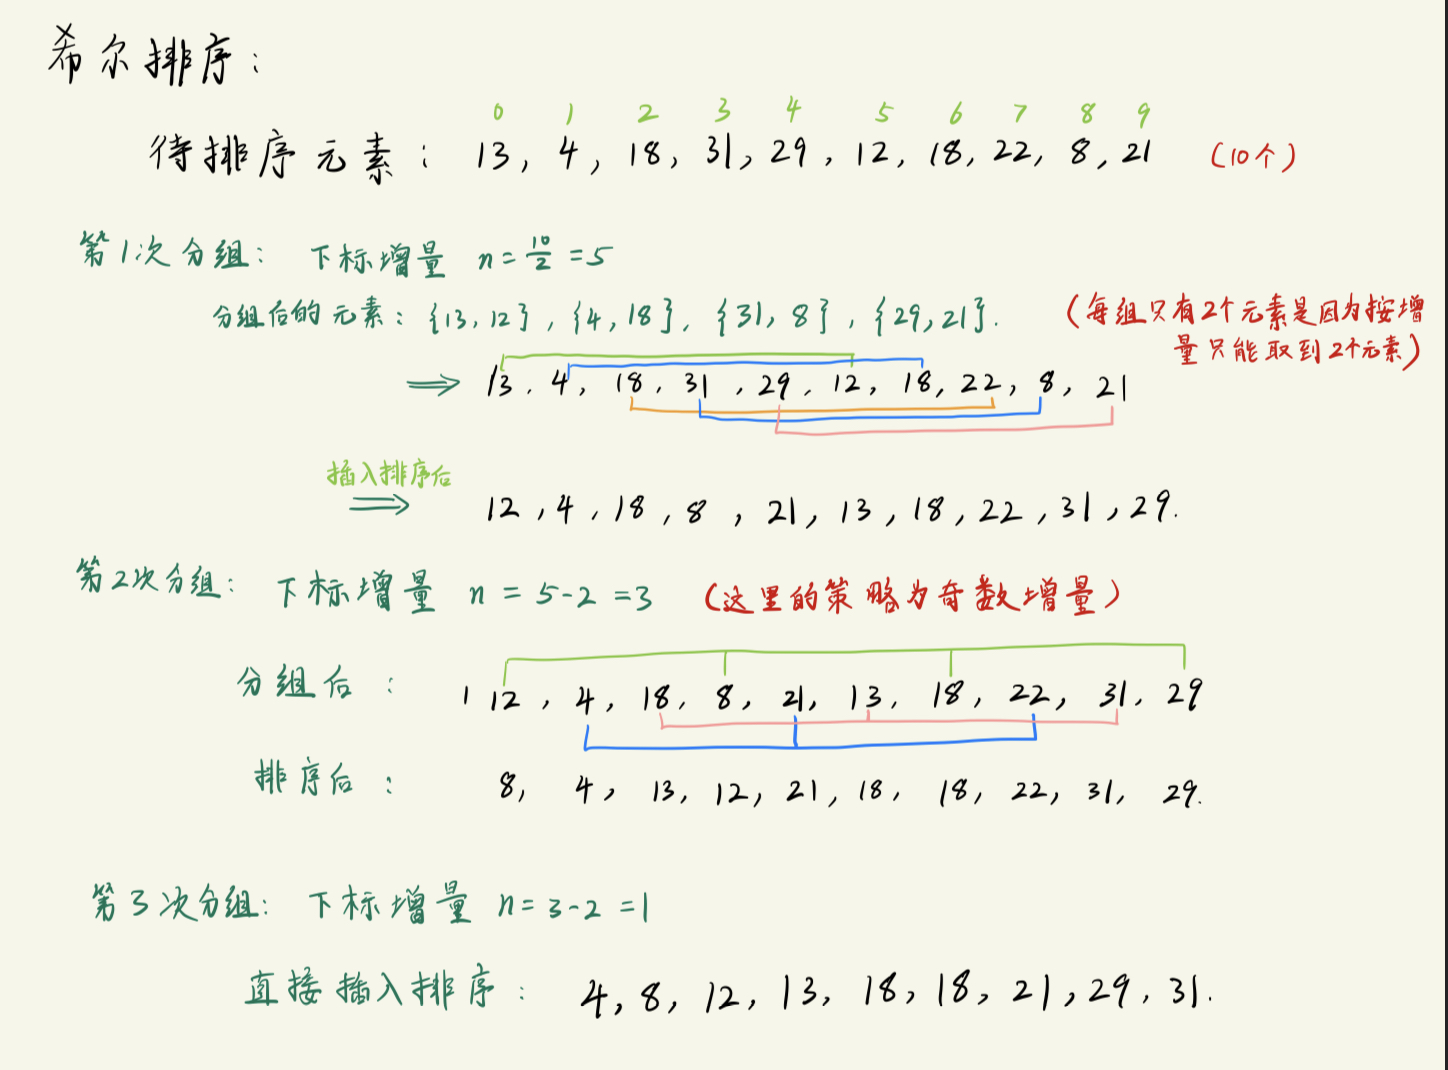 希尔排序：
0 1 2 3 4 5 6 7 8 9
待排序元素： 13, 4, 18, 31, 29, 12, 18, 22, 8, 21 (10个)
第1次分组： 下标增量 n = 10/2 = 5
分组后的元素：{13, 12}, {4, 18}, {31, 8}, {29, 21}. (每组只有2个元素是因为按增
量只能取到2个元素)
⇒ 13, 4, 18, 31, 29, 12, 18, 22, 8, 21
插入排序后
⇒ 12, 4, 18, 8, 21, 13, 18, 22, 31, 29.
第2次分组： 下标增量 n = 5-2 = 3 (这里的策略为奇数增量)
分组后： 1 12, 4, 18, 8, 21, 13, 18, 22, 31, 29
排序后： 8, 4, 13, 12, 21, 18, 18, 22, 31, 29.
第3次分组： 下标增量 n = 3-2 = 1
直接插入排序： 4, 8, 12, 13, 18, 18, 21, 29, 31.